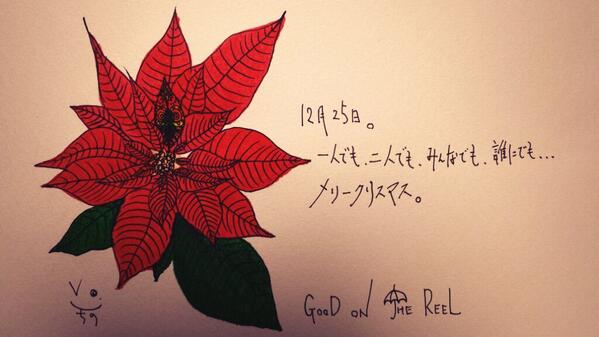 12月25日。
一人でも、二人でも、みんなでも、誰にでも...
メリークリスマス。
GOOD ON THE REEL
Vo.
ちの